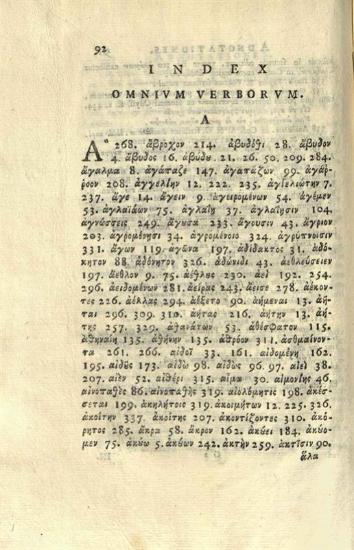 92
INDEX
OMNIVM VERBORVM.
A
Ἆ 268. ἄβροχον 214. ἀβυδόθι 28. ἄβυδον
4. ἄβυδος 16. ἀβύδου 21. 26. 50. 209. 284.
ἄγαλμα 8. ἀγάπαζε 147. ἀγαπάζων 99. ἀγάρ-
ροον 208. ἀγγελίην 12. 222. 235. ἀγγελιώτην 7.
237. ἄγε 14. ἄγειν 9. ἀγειρομένων 54. ἀγέμεν
53. ἀγλαΐαων 75. ἀγλαΐη 37. ἀγλαΐησιν 104.
ἀγνώσσεις 249. ἄγουσα 233. ἄγουσιν 43. ἄγριον
203. ἀγρομένησι 34. ἀγρομένοις 324. ἀγρύπνοισιν
331. ἄγων 119. ἀγῶνα 197. ἀδίδακτος 31. ἀδό-
κητον 88 ἀδόνητον 326. ἀδώνιδι 43. ἀεθλεύσειεν
197. ἄεθλον 9. 75. ἄεθλος 230. ἀεὶ 192. 254.
296. ἀειδομένων 281. ἀείρας 243. ἄεισε 278. ἀέκον-
τες 226. ἀέλλας 294. ἀέξετο 90. ἀήμεναι 13. ἀῆ-
ται 296. 309. 310. ἀήτας 216. ἀήτην 13. ἀή-
της 257. 329. ἀθανάτων 53. ἀθέσφατον 115.
ἀθηναίη 135. ἀθήνην 135. ἀθρέον 311. ἀσθμαίνον-
τα 261. 266. αἰδοῖ 33. 161. αἰδομένη 162.
195. αἰδοῦς 173. αἰδῶ 98. αἰδὼς 96. 97. αἰεὶ 38.
207. αἰὲν 52. αἰθέρι 315. αἷμα 30. αἱμονίης 46.
αἰνοπαθὲς 86. αἰνοπαθὴς 319. αἰολόμητις 198. ἀκέσ-
σεται 199. ἀκηλήτοις 319. ἀκοιμήτων 12. 225. 326.
ἀκοίτην 337. ἀκοίτης 207. ἀκοντίζοντες 310. ἀκό-
ρητος 285. ἄκρα 58. ἄκρον 162. ἀκούει 184. ἀκούο-
μεν 75. ἀκούω 5. ἀκούων 242. ἀκτὴν 259. ἀκτῖσιν 90.
ἅλα